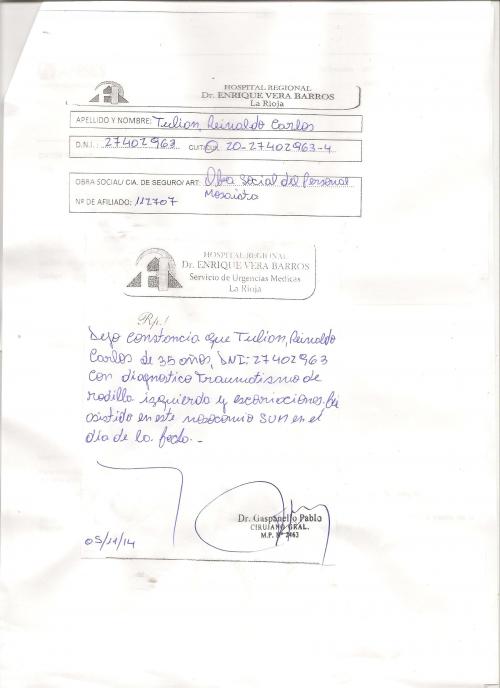 HOSPITAL REGIONAL
Dr. ENRIQUE VERA BARROS
La Rioja
APELLIDO Y NOMBRE: Tulian, Reinaldo Carlos
D.N.I.: 27402963 CUIT/CUIL 20-27402963-4
OBRA SOCIAL/ CIA. DE SEGURO/ ART: Obra Social del Personal
Nº DE AFILIADO: 112707 Mosaista
HOSPITAL REGIONAL
Dr. ENRIQUE VERA BARROS
Servicio de Urgencias Medicas
La Rioja
Rp./
Dejo constancia que Tulian, Reinaldo
Carlos de 35 años, DNI: 27402963
con diagnostico Traumatismo de
rodilla izquierda y escoriaciones. fue
asistido en este nosocomio SUM en el
día de la fecha.-
Dr. Gaspanello Pablo
CIRUJANO GRAL.
M.P. Nº 2463
05/11/14